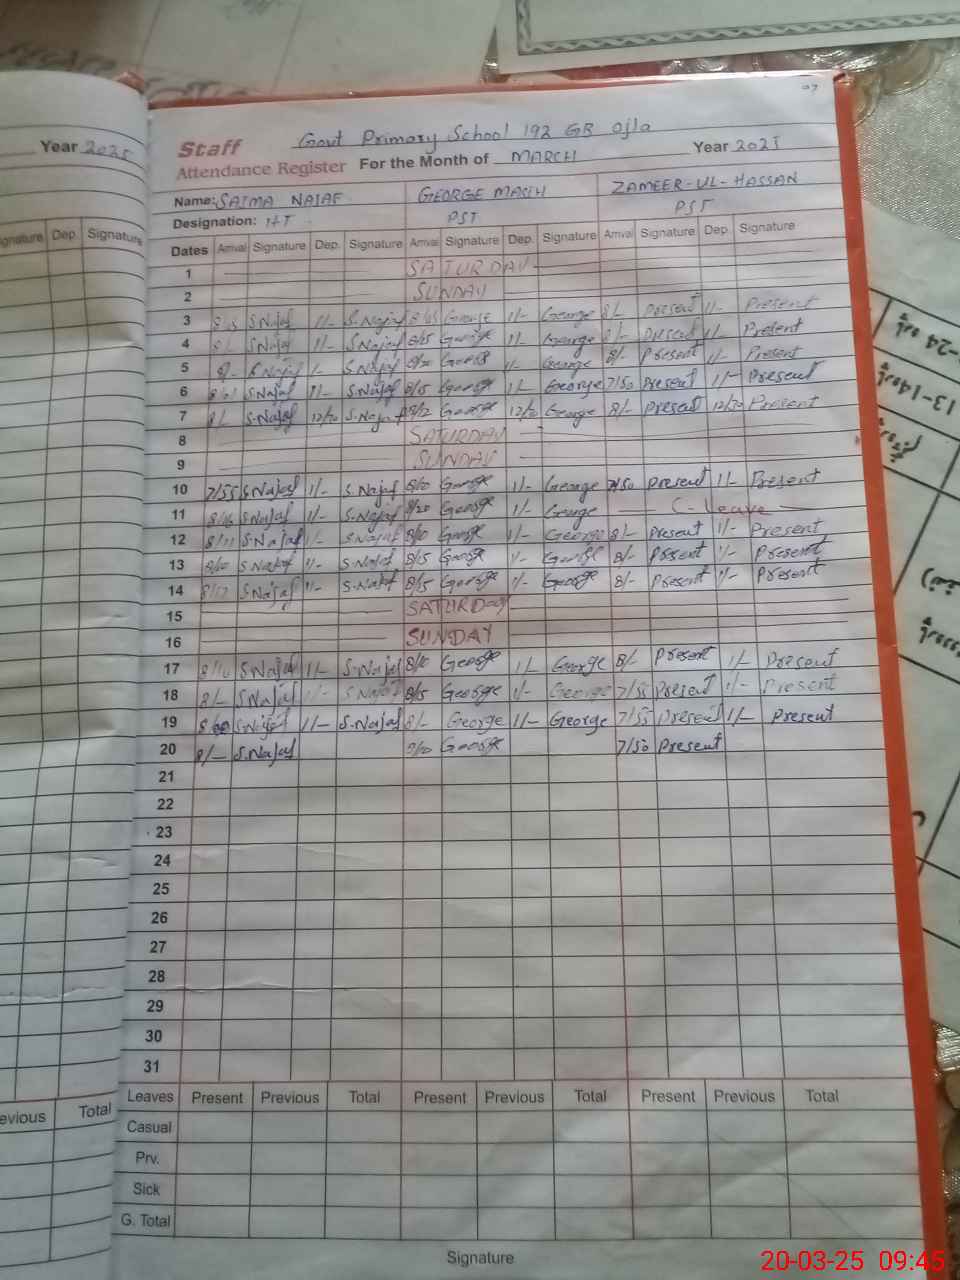 Year 2025
Staff Govt Primary School 192 GB Ojla
Attendance Register For the Month of MARCH Year 2025
Name: SAIMA NAJAF GEORGE MASIH ZAMEER-UL-HASSAN
Designation: PST PST
Signature Dep. Signature
Dates Arrival Signature Dep. Signature Arrival Signature Dep. Signature Arrival Signature Dep. Signature
1 SATURDAY
2 SUNDAY
3 S.Najaf 1/- S.Najaf George 1/- George 8/- Present 1/- Present
4 8/- S.Najaf 1/- S.Najaf 8/15 George 1/- George 8/- Present 1/- Present
5 8/- S.Najaf 1/- S.Najaf George 1/- George 8/- Present 1/- Present
6 S.Najaf 1/- S.Najaf 8/15 George 1/- George 7/50 Present 1/- Present
7 8/- S.Najaf S.Najaf 8/12 George George 8/- Present 12/30 Present
8 SATURDAY
9 SUNDAY
10 7/55 S.Najaf 1/- S.Najaf 8/10 George 1/- George 7/50 Present 1/- Present
11 S.Najaf 1/- S.Najaf 8/20 George 1/- George C-Leave
12 8/11 S.Najaf 1/- S.Najaf 8/10 George 1/- George 8/- Present 1/- Present
13 8/10 S.Najaf 1/- S.Najaf 8/15 George 1/- George 8/- Present 1/- Present
14 8/12 S.Najaf 1/- S.Najaf 8/15 George 1/- George 8/- Present 1/- Present
15 SATURDAY
16 SUNDAY
17 8/10 S.Najaf 1/- S.Najaf 8/10 George 1/- George 8/- Present 1/- Present
18 8/- S.Najaf 1/- S.Najaf 8/15 George 1/- George 7/55 Present 1/- Present
19 S.Najaf 1/- S.Najaf 8/- George 1/- George 7/55 Present 1/- Present
20 8/- S.Najaf George 7/50 Present
21
22
23
24
25
26
27
28
29
30
31
Leaves Present Previous Total Present Previous Total Present Previous Total
Previous Total
Casual
Prv.
Sick
G. Total
Signature
20-03-25 09:45